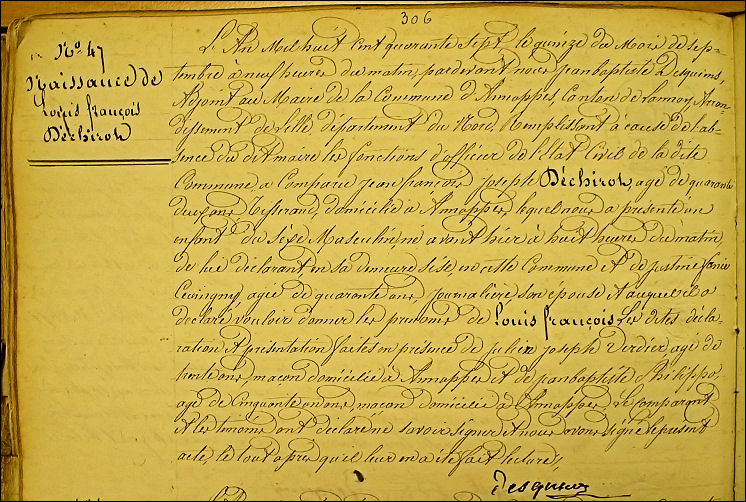 306
No 47
Naissance de
Louis françois
Déchirot
L'An Mil huit Cent quarante Sept, le quinze du Mois de Sep-
tembre à neuf heures du matin, pardevant nous Jeanbaptiste Desquiens,
Adjoint au Maire de la Commune d'Annappes, Canton de Lannoy, Arron-
dissement de Lille, département du Nord, Remplissant à cause de l'ab-
sence du dit maire les fonctions d'officier de l'Etat Civil de la dite
Commune, a Comparu Jean françois joseph Déchirot, agé de quarante
deux ans, Tisserand, domicilié à Annappes, lequel nous a présenté un
enfant du sèxe Masculin, né avant hier à huit heures du matin,
de lui déclarant, en sa demeure sise en cette Commune et de justine
agée de quarante ans, journalière, son épouse et auquel il a
déclaré vouloir donner les prénoms de Louis françois. Les dites décla-
ration et présentation faites en présence de julien joseph Verdier, agé de
trente ans, maçon domicilié à Annappes et de jeanbaptiste Philippo,
agé de Cinquante un ans, maçon domicilié à Annappes. Le Comparant
et les témoins ont déclaré ne savoir signer et nous avons signé le présent
acte, le tout après qu'il leur en a été fait lecture,